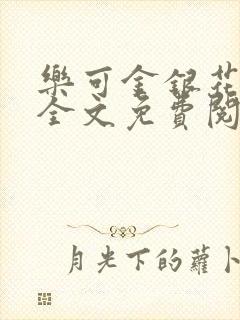 樂可金銀花
全文免費閱
月光下的蘿卜